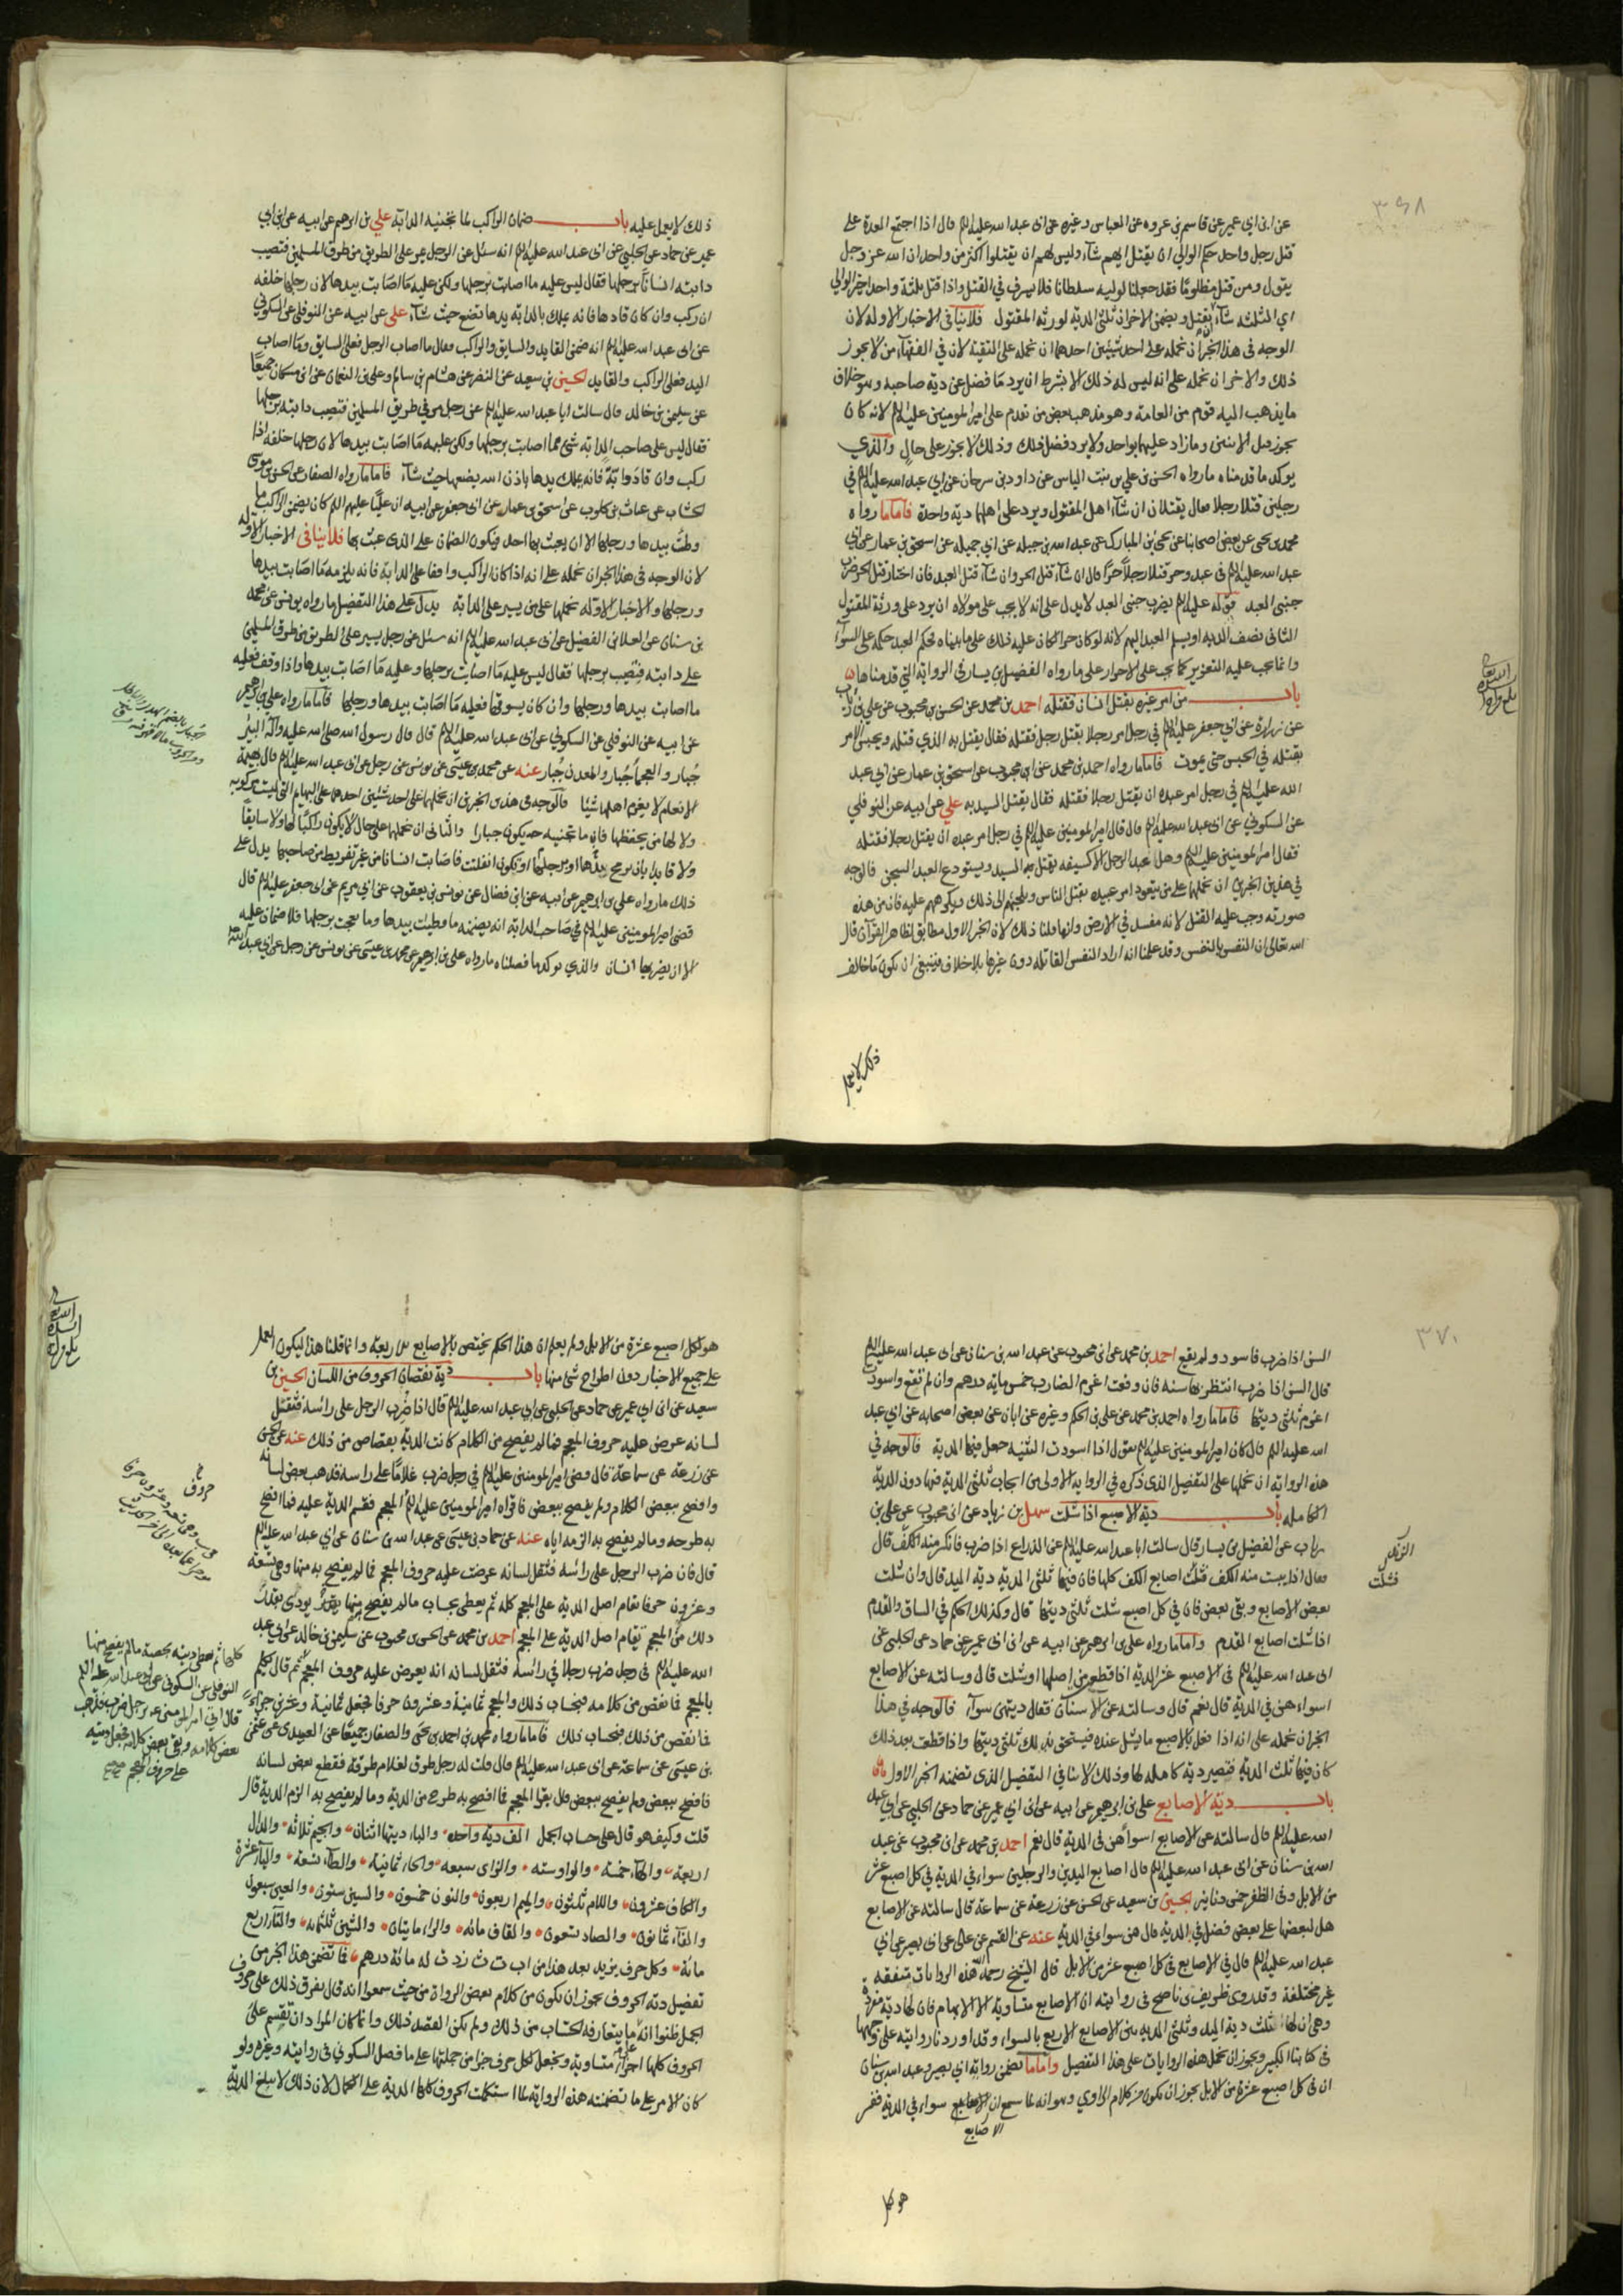 ٣٦٨
عن ابن ابي عمير عن قاسم بن عروه عن العباس وغيره عن ابى عبد الله عليه الم قال اذا اجتمع العدة على
قتل رجل واحد حكم الوالي ان يقتل ايهم شآء وليس لهم ان يقتلوا اكثر من واحد ان الله عز وجل
يقول ومن قتل مظلومًا فقد جعلنا لوليه سلطانا فلا يسرف في القتل واذا قتل ثلثة واحدا خير الوالي
اي الثلثه شآء ان يقتل ويضمن الاخران ثلثى الديه لورثه المقتول فلا ينافى الاخبار الاوله لان
الوجه فى هذا الخبر ان نحمله على احد شيئين احدهما ان نحمله على التقية لان في الفقهآء من لا يجوز
ذلك والاخر ان نحمله على انه ليس له ذلك الا بشرط ان يرد مَا فضل عن ديّة صاحبه وهو خلاف
ما يذهب اليه قوم من العامة وهو مذهب بعض من تقدم على امير المومنين عليه الم لانه كان
يجوز قتل الاثنين وما زاد عليهما بواحد ولا يرد فضل ذلك وذلك لا يجوز على حالٍ والذي
يوكد ما قدمناه ما رواه الحسن بن علي بن بنت الياس عن داود بن سرحان عن ابي عبد الله عليه الم في
رجلين قتلا رجلا قال يقتلان ان شآء اهل المقتول ويرد على اهلهما ديّة واحدة فاما ما رواه
محمد بن يحيى عن بعض اصحابنا عن يحيى بن المبارك عن عبد الله بن جبله عن ابي جميله عن اسحق بن عمار عن ابي
عبد الله عليه الم فى عبد وحر قتلا رجلاً حرًّا قال ان شآء قتل الحر وان شآء قتل العبد فان اختار قتل الحر ضرب
جنبي العبد قوله عليه الم يضرب جنبى العبد لا يدل على انه لا يجب على مولاه ان يرد على ورثة المقتول
الثانى نصف الديه او يسلم العبد اليهم لانه لو كان حرا لكان عليه ذلك على ما بيناه فحكم العبد حكمه على السوآء
وانما يجب عليه التعزير كما يجب على الاحرار على ما رواه الفضيل بن يسار في الرواية التي قدمناها
باب من امر غيره بقتل انسان فقتله احمد بن محمد عن الحسن بن محبوب عن علي بن رئاب
عن زراره عن ابي جعفر عليه الم في رجل امر رجلا بقتل رجل فقتله فقال يقتل به الذي قتله ويحبس الامر
بقتله في الحبس حتى يموت فاما ما رواه احمد بن محمد عن ابن محبوب عن اسحق بن عمار عن ابي عبد
الله عليه الم في رجل امر عبده ان يقتل رجلا فقتله فقال يقتل السيد به علي عن ابيه عن النوفلي
عن السكوني عن ابى عبد الله عليه الم قال قال امير المومنين عليه الم في رجل امر عبده ان يقتل رجلا فقتله
فقال امير المومنين عليه الم وهل عبد الرجل الا كسيفه يقتل به السيد ويستودع العبد السجن فالوجه
في هذين الخبرين ان نحملهما على من يتعود امر عبيده بقتل الناس ويلجئهم الى ذلك ويكرههم عليه فان من هذه
صورته وجب عليه القتل لانه مفسد في الارض وانما قلنا ذلك لان الخبر الاول مطابق لظاهر القرآن قال
الله تعالى ان النفس بالنفس وقد علمنا انه اراد النفس القاتله دون غيرها بلا خلاف فينبغى ان يكون ما خالف
ذلك لا يعمل
ذلك لا يعمل عليه باب ضمان الراكب لما تجنيه الدابة علي بن ابرهيم عن ابيه عن ابن ابي
عمير عن حماد عن الحلبي عن ابى عبد الله عليه الم انه سئل عن الرجل يمر على الطريق من طرق المسلمين فتصيب
دابته انسانًا برجلها فقال ليس عليه ما اصابت برجلها ولكن عليه مَا اصَابت بيدها لان رجلها خلفه
ان ركب وان كان قادها فانه يملك بالدابة يدها يضع حيث شآء علي عن ابيه عن النوفلى عن السكونى
عن ابى عبد الله عليه الم انه ضمن القايد والسايق والراكب فقال ما اصاب الرجل فعلى السايق وما اصاب
اليد فعلى الراكب والقايد الحسين بن سعيد عن النضر عن هشام بن سالم وعلى بن النعمان عن ابن مسكان جميعًا
عن سليمن بن خالد قال سالت ابا عبد الله عليه الم عن رجل مر في طريق المسلمين فتصيب دابته برجلها
فقال ليس على صاحب الدابه شئ مما اصابت برجلها ولكن عليه مَا اصَابت بيدها لان رجلها خلفه اذا
ركب وان قاد دابّة فانه يملك يدها باذن الله يضعها حيث شآء فاما ما رواه الصفار عن الحسن بن موسى
الخشاب عن غياث بن كلوب عن اسحق بن عمار عن ابى جعفر عن ابيه ان عليًّا عليهم الم كان يضمن الراكب ما
وطئت بيدها ورجلها الا ان يعبث بها احد فيكون الضمان على الذى عبث بها فلا ينافى الاخبار الاوله
لان الوجه فى هذا الخبر ان نحمله على انه اذا كان الراكب واقفا على الدابة فانه يلزمه مَا اصَابت بيدها
ورجلها والاخبار الاوّله نحملها على من يسير على الدابة يدل على هذا التفصيل ما رواه يونس عن محمد
بن سنان عن العلا بن الفضيل عن ابى عبد الله عليه الم انه سئل عن رجل يسير على الطريق من طرق المسلمين
على دابته فتصيب برجلها فقال ليس عليه مَا اصابت برجلها وعليه مَا اصَابت بيدها واذا وقفت فعليه
ما اصابت بيدها ورجلها وان كان يسوقها فعليه مَا اصَابت بيدها ورجلها فاما ما رواه علي بن ابرهيم
عن ابيه عن النوفلي عن السكوني عن ابى عبد الله عليه الم قال قال رسول الله صلى الله عليه وآله البئر
جُبار والعجمآ جُبار والمعدن جُبار عنه عن محمد بن عيسى عن يونس عن رجل عن ابى عبد الله عليه الم قال بهيمة
الانعام لا يغرم اهلها شيئا فالوجه فى هذين الخبرين ان نحملها على احد شيئين احدهما على البهايم التى ليست مركوبه
ولا لها من يحفظها فان ما تجنيه حه يكون جبارا والثانى ان نحملها على حال لا يكون راكبا لها ولا سايقا
ولا قايدا بان يرمح بيدها او برجلها او تكون انفلتت فاصابت انسانا من غير تفريط من صاحبها يدل على
ذلك ما رواه علي بن ابرهيم عن ابيه عن ابن فضال عن يونس بن يعقوب عن ابى مريم عن ابى جعفر عليه الم قال
قضى امير المومنين عليه الم في صاحب الدابه انه يضمنه ما وطئت بيدها وما بعجت برجلها فلا ضمان عليه
الا ان يضربها انسان والذي يوكد ما فصلناه ما رواه على بن ابرهيم عن محمد بن عيسى عن يونس عن رجل عن ابي عبد الله
٣٧٠
السن اذا ضرب فاسود ولم يقع احمد بن محمد عن ابن محبوب عن عبد الله بن سنان عن ابى عبد الله عليه الم
قال السن اذا ضرب انتظر بها سنه فان وقعت اغرم الضارب خمس مايه درهم وان لم تقع واسودت
اغرم ثلثى ديتها فاما ما رواه احمد بن محمد عن على بن الحكم وغيره عن ابان عن بعض اصحابه عن ابي عبد
الله عليه الم قال كان امير المومنين عليه الم يقول اذا اسودت الثنيه جعل فيها الدية فالوجه فى
هذه الروايه ان نحملها على التفصيل الذى ذكر في الروايه الاولى من ايجاب ثلثى الدية فيها دون الدية
الكامله باب دية الاصبع اذا شلت سهل بن زياد عن ابن محبوب عن على بن
رئاب عن الفضيل بن يسار قال سالت ابا عبد الله عليه الم عن الذراع اذا ضرب فانكسر منه الكف قال
فقال اذا يبست منه الكف فشلّت اصابع الكف كلها فان فيها ثلثى الديه ديه اليد قال وان شلت
بعض الاصابع وبقى بعض فان في كل اصبع شلت ثلثى ديتها قال وكذلك الحكم في الساق والقدم
اذا شلت اصابع القدم واما ما رواه على بن ابرهيم عن ابيه عن ابن ابى عمير عن حماد عن الحلبى عن
ابى عبد الله عليه الم فى الاصبع عشر الديه اذا قطعت من اصلها او شلت قال وسالته عن الاصابع
اسواء هن في الدية قال نعم قال وسالته عن الاسنان فقال ديتهن سوآء فالوجه في هذا
الخبر ان نحمله على انه اذا فعل بالاصبع ما يشل عنده فيستحق بذلك ثلثى ديتها واذا قطعت بعد ذلك
كان فيها ثلث الدية فتصير ديّة كامله لها وذلك لا ينافي التفصيل الذى تضمنه الخبر الاول
باب ديّة الاصابع على بن ابرهيم عن ابيه عن ابن ابي عمير عن حماد عن الحلبي عن ابي عبد
الله عليه الم قال سالته عن الاصابع اسواء هن فى الدية قال نعم احمد بن محمد عن ابن محبوب عن عبد
الله بن سنان عن ابى عبد الله عليه الم قال اصابع اليدين والرجلين سواء في الدية في كل اصبع عشر
من الابل وفى الظفر خمسة دنانير الحسين بن سعيد عن الحسن عن زرعة عن سماعة قال سالته عن الاصابع
هل لبعضها على بعض فضل في الدية قال هن سواء في الدية عنه عن القسم عن على عن ابى بصير عن ابي
عبد الله عليه الم قال في الاصابع فى كل اصبع عشر من الابل قال الشيخ رحمه الله هذه الروايات متفقه
غير مختلفة وقد روى ظريف بن ناصح فى روايته ان الاصابع متساوية الا الابهام فان لها دية مفردة
وهى ان لها ثلث دية اليد وثلثى الديه بين الاصابع الاربع بالسواء وقد اوردنا روايته على وجهها
فى كتابنا الكبير ويجوز ان نحمل هذه الروايات على هذا التفصيل واما ما تضمن رواية ابي بصير وعبد الله بن سنان
ان فى كل اصبع عشرة من الابل يجوز ان يكون من كلام الراوي وهو انه لما سمع ان الاصابع سواء في الدية فسر
الاصابع
هو لكل
فشلت
هو لكل اصبع عشرة من الابل ولم يعلم ان هذا الحكم يختص بالاصابع الاربعة وانما قلنا هذا ليكون العمل
على جميع الاخبار دون اطراح شئ منها باب دية نقصان الحروف من اللسان الحسين بن
سعيد عن ابن ابى عمير عن حماد عن الحلبى عن ابي عبد الله عليه الم قال اذا ضرب الرجل على رائسه فثقل
لسانه عرض عليه حروف المعجم فما لم يفصح من الكلام كانت الدية بقصاص من ذلك عنه عن الحسن
عن زرعة عن سماعة قال قضى امير المومنين عليه الم في رجل ضرب غلامًا على راسه فذهب بعض لسانه
وافصح ببعض الكلام ولم يفصح ببعض فاقراه امير المومنين عليه الم المعجم فقسم الدية عليه فما افصح
به طرحه وما لم يفصح به الزمه اياه عنه عن حماد بن عيسى عن عبد الله بن سنان عن ابي عبد الله عليه الم
قال فان ضرب الرجل على رائسه فثقل لسانه عرضت عليه حروف المعجم فما لم يفصح به منها وهى تسعة
وعشرون حرفا تقام اصل الدية على المعجم كله ثم يعطى بحساب ما لم يفصح منها
ذلك من المعجم تقام اصل الدية على المعجم احمد بن محمد عن الحسن بن محبوب عن سليمن بن خالد عن ابى عبد
الله عليه الم فى رجل ضرب رجلا في رائسه فثقل لسانه انه يعرض عليه حروف المعجم ثم قال
بالمعجم فما نقص من كلامه فبحساب ذلك والمعجم ثمانية وعشرون حرفا فجعل ثمانية وعشرين جزاءً
فما نقص من ذلك فبحساب ذلك فاما ما رواه محمد بن احمد بن يحيى والصفار جميعًا عن العبيدى عن عثمن
بن عيسى عن سماعة عن ابى عبد الله عليه الم قال قلت له رجل طرق لغلام طرقة فقطع بعض لسانه
فافصح ببعض ولم يفصح ببعض قال يقرا المعجم فما افصح به طرح من الدية وما لم يفصح به الزم الدية قال
قلت وكيف هو قال على حساب الجمل الف دية واحد والباء ديتها اثنان والجيم ثلاثه والدال
اربعة والهآء خمسة والواو سته والزاى سبعه والحاء ثمانية والطآء تسعة واليآء عشرة
والكاف عشرون واللام ثلثون والميم اربعون والنون خمسون والسين ستون والعين سبعون
والفآء ثمانون والصاد تسعون والقاف مائه والراء مايتان والشين ثلثمائه والتآء اربع
مائة وكل حرف يزيد بعد هذا من اب ت ث زدت له مائة درهم فما تضمن هذا الخبر من
تفصيل دية الحروف يجوز ان يكون من كلام بعض الرواة من حيث سمعوا انه قال يفرق ذلك على حروف
الجمل ظنوا انه ما يتعارفه الحساب من ذلك ولم يكن القصد ذلك وانما كان المراد ان تقسم على
الحروف كلها اجزاء متساوية ونجعل لكل حرف جزا من جملتها على ما فصل السكوني فى روايته وغيره ولو
كان الامر على ما تضمنته هذه الرواية لما استكملت الحروف كلها الدية على الكمال لان ذلك لا يبلغ الدية